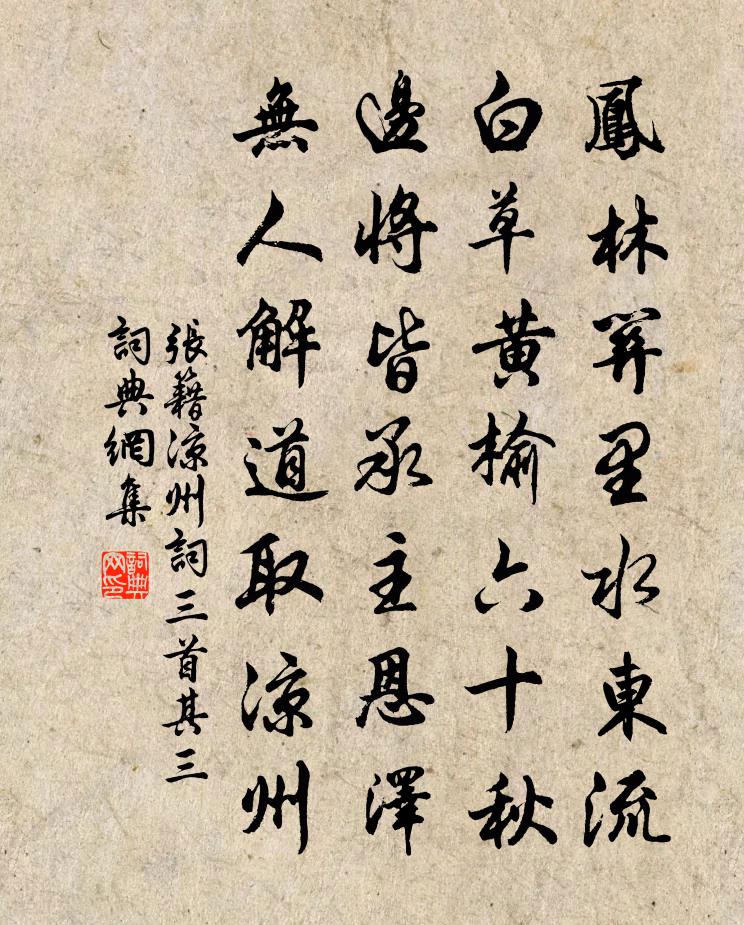 鳳林關里水東流
白草黃榆六十秋
邊將皆承主恩澤
無人解道取涼州
張籍涼州詞三首其三
詞典網集
詞典
网印